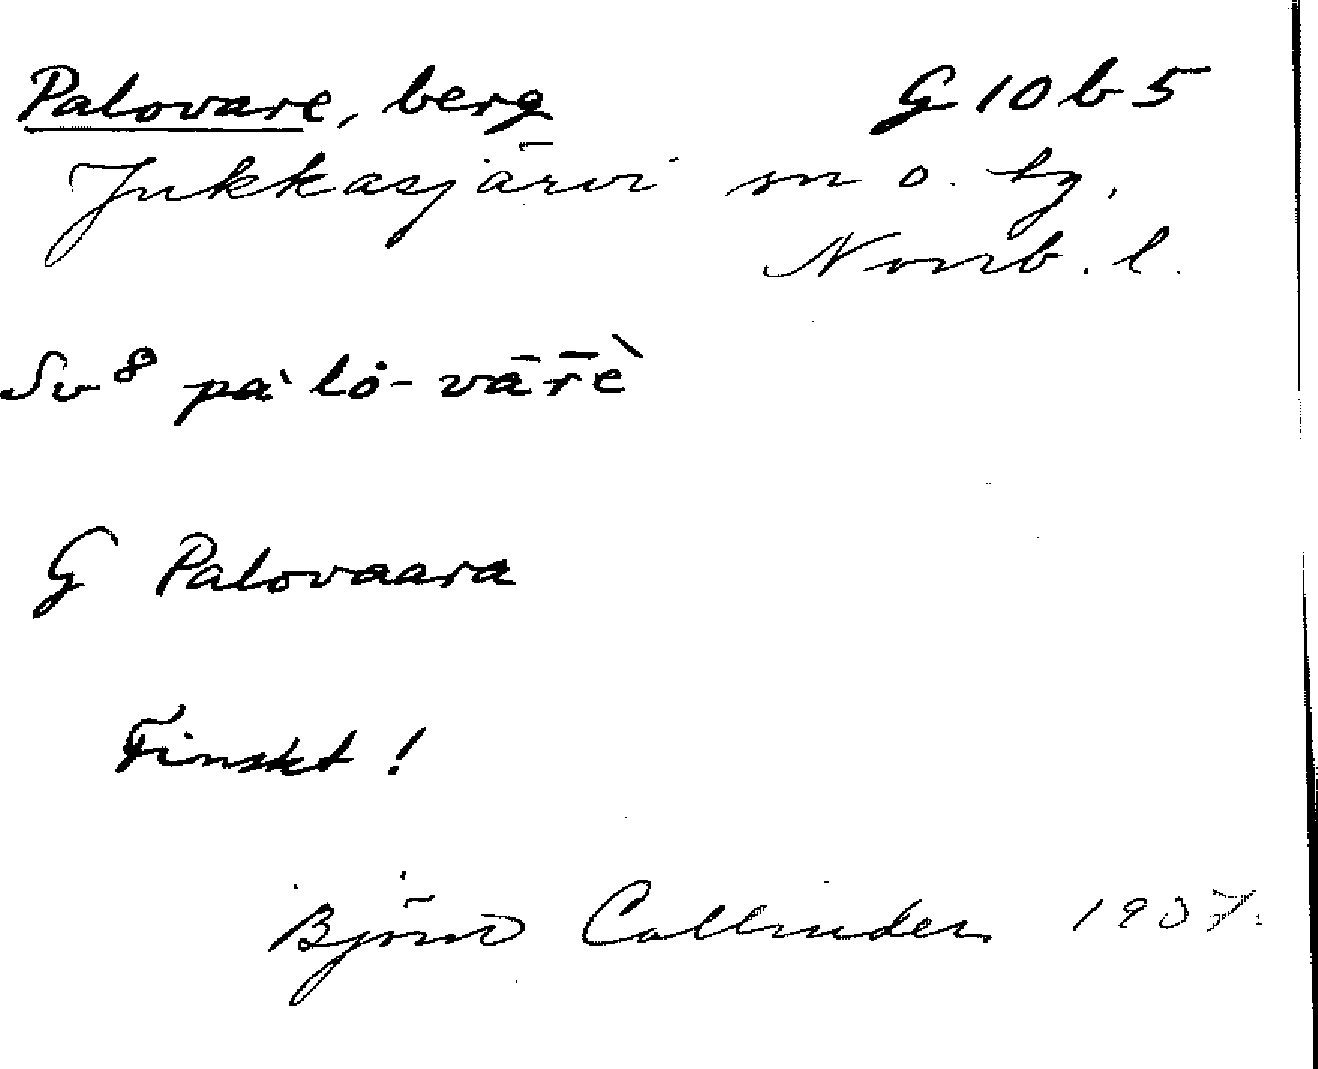 Palovare, berg G 10 b 5
Jukkasjärvi sn o. tg.
Norrb. l.
Sv 8 pàlò-vār̄è
G Palovaara
Finskt!
Björn Collinder 1937.